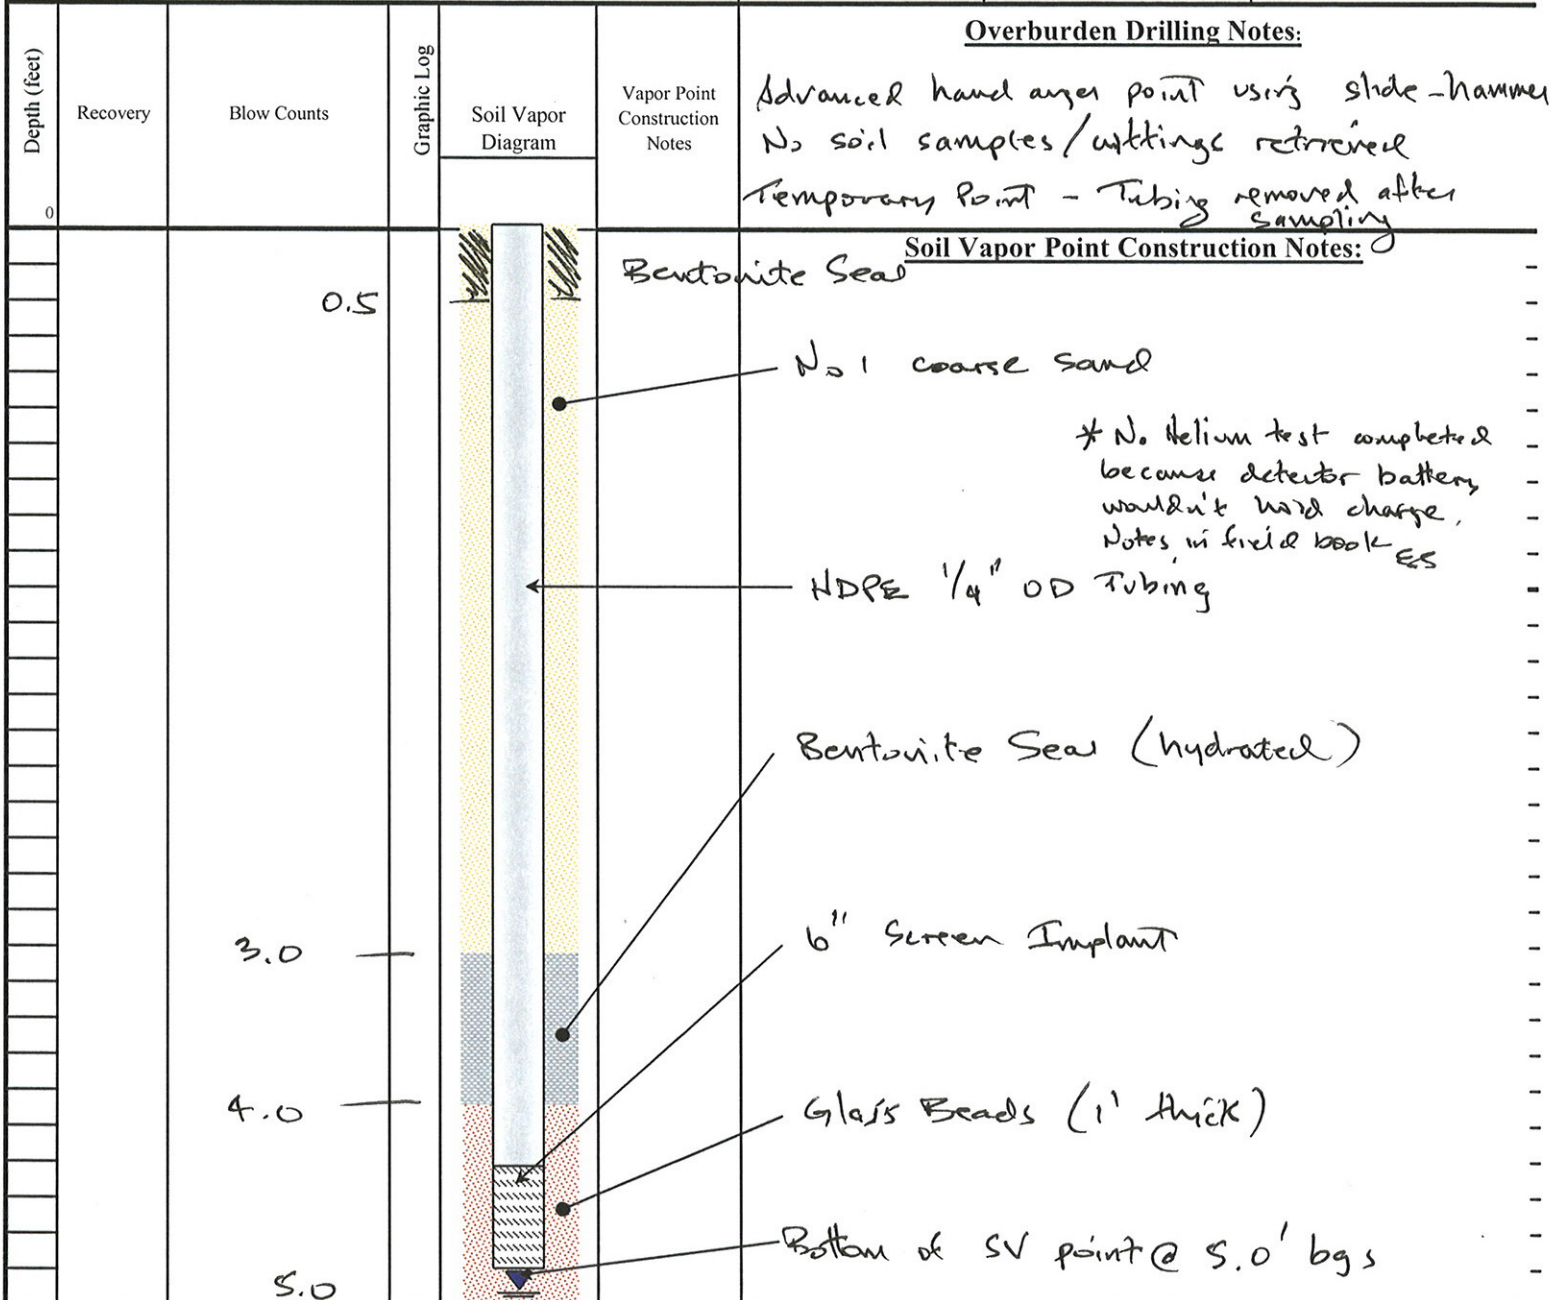 Depth (feet)
Recovery
Blow Counts
Graphic Log
Soil Vapor
Diagram
Vapor Point
Construction
Notes
Overburden Drilling Notes:
Advanced hand auger point using slide-hammer
No soil samples/cuttings retrieved
Temporary Point - Tubing removed after
sampling
0
Soil Vapor Point Construction Notes:
Bentonite Seal
0.5
No 1 coarse sand
* No Helium test completed
because detector battery
wouldn't hold charge.
Notes in field book ES
HDPE 1/4" OD Tubing
Bentonite Seal (hydrated)
6" Screen Implant
3.0
4.0
Glass Beads (1' thick)
Bottom of SV point @ 5.0' bgs
5.0